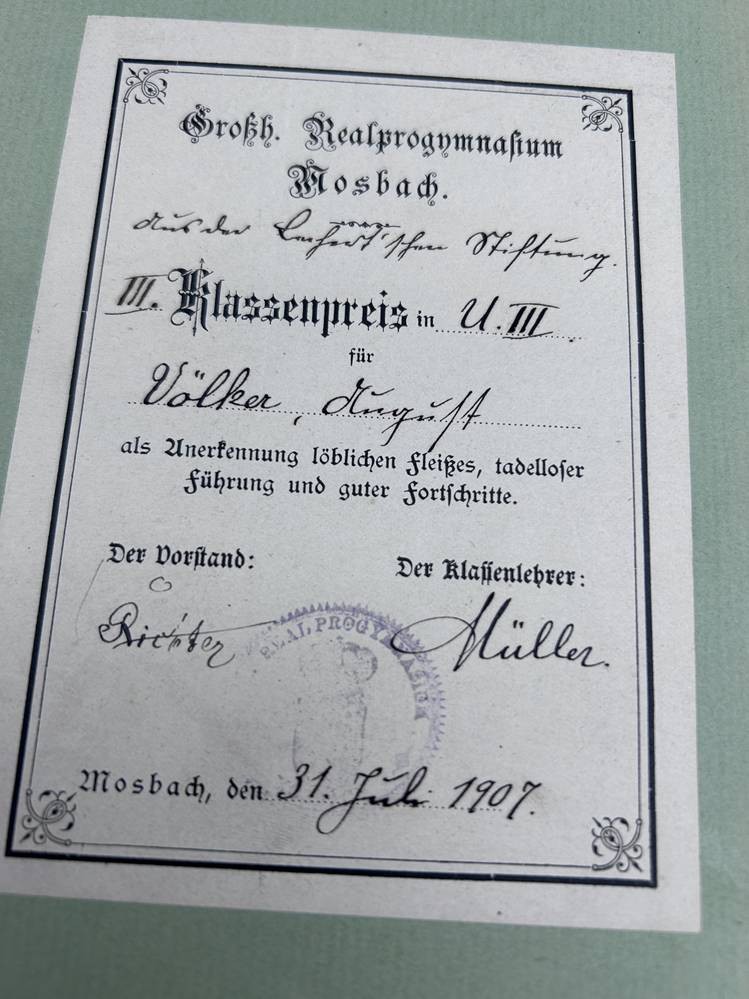 Großh. Realprogymnasium
Mosbach.
Aus der 'schen Stiftung.
III. Klassenpreis in U. III.
für
Völker, August
als Anerkennung löblichen Fleißes, tadelloser
Führung und guter Fortschritte.
Der Vorstand: Der Klassenlehrer:
Richter Müller.
REALPROGYMNASIUM
Mosbach, den 31. Juli 1907.